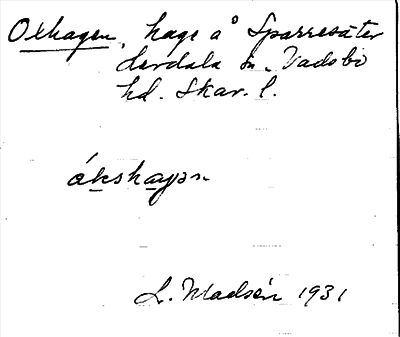 Oxhagen, hage å Sparresäter
Lerdala sn. Vadsbo
hd. Skar. l.
ókshagən
L. Madsén 1931